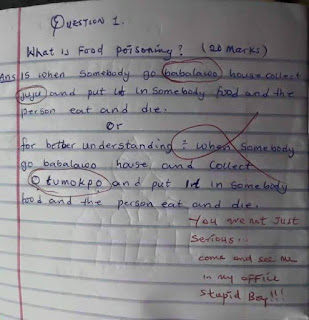 Question 1.
What is Food poisoning? (20 Marks)
Ans Is when Somebody go babalawo house collect
juju and put it in Somebody food and the
person eat and die.
Or
for better understanding : when Somebody
go babalawo house and Collect
Otumokpo and put it in Somebody
food and the person eat and die.
You are not Just
Serious...
come and see me
in my office
Stupid Boy!!!